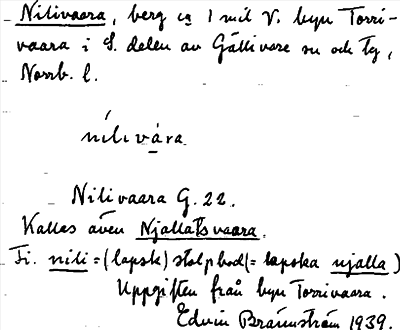 Nilivaara, berg ca 1 mil V. byn Torri-
vaara i S. delen av Gällivare sn och tg,
Norrb. l.
nílivàra
Nilivaara G. 22.
Kallas även Njallatsvaara.
Fi. nili = (lapsk) stolpbod (= lapska njalla)
Uppgiften från byn Torrivaara.
Edvin Brännström 1939.